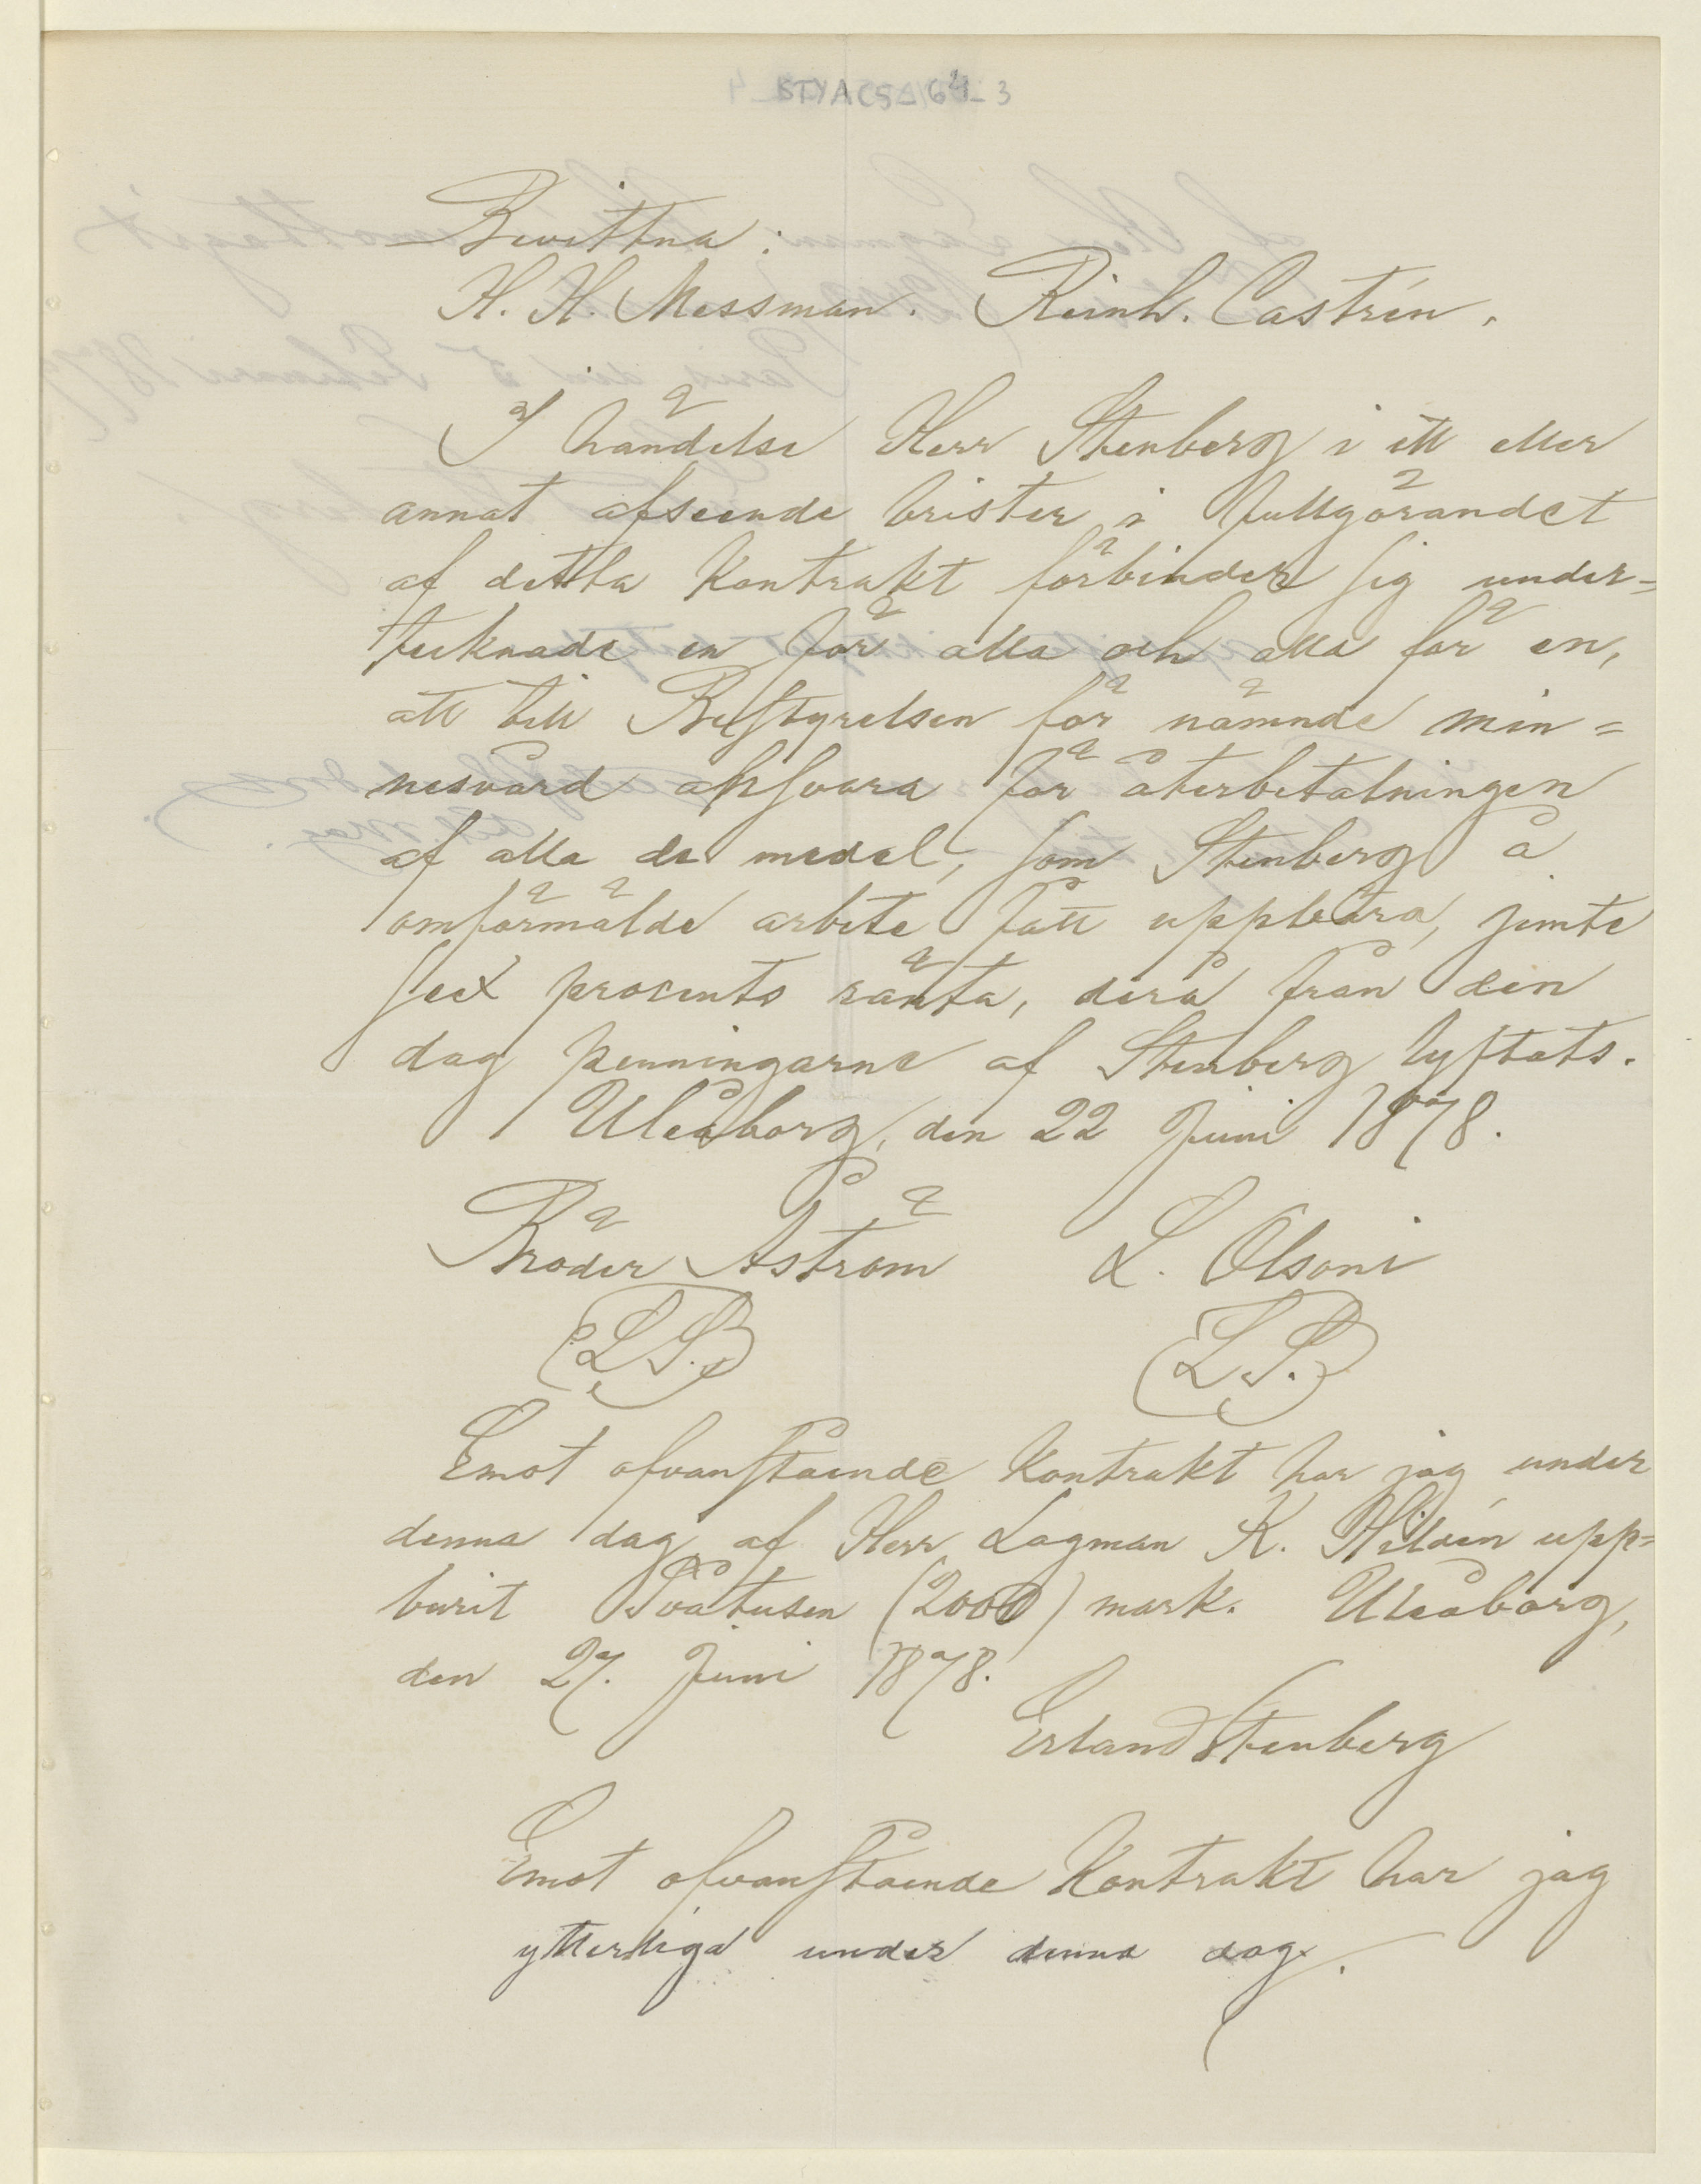 STYACS_64_3
Bevittna:
H. H. Messman. Reinh. Castrén.
I händelse Herr Stenberg i ett eller
annat afseende brister i fullgörandet
af detta Kontrakt förbinder sig under=
tecknade en för alla och alla för en,
att till Bestyrelsen för nämnde min=
nesvård ansvara för återbetalningen
af alla de medel, som Stenberg å
omförmälde arbete fått uppbära, jemte
sex procents ränta, derå från den
dag penningarne af Stenberg lyftats.
Uleåborg, den 22 Juni 1878.
Bröder Åström L. Olsoni
L.S. L.S.
Emot ofvanstående Kontrakt har jag under
denna dag af Herr Lagman K. Hildén upp=
burit Tvåtusen (2000) mark. Uleåborg,
den 27. Juni 1878.
Erland Stenberg
Emot ofvanstående Kontrakt har jag
ytterliga under denna dag.